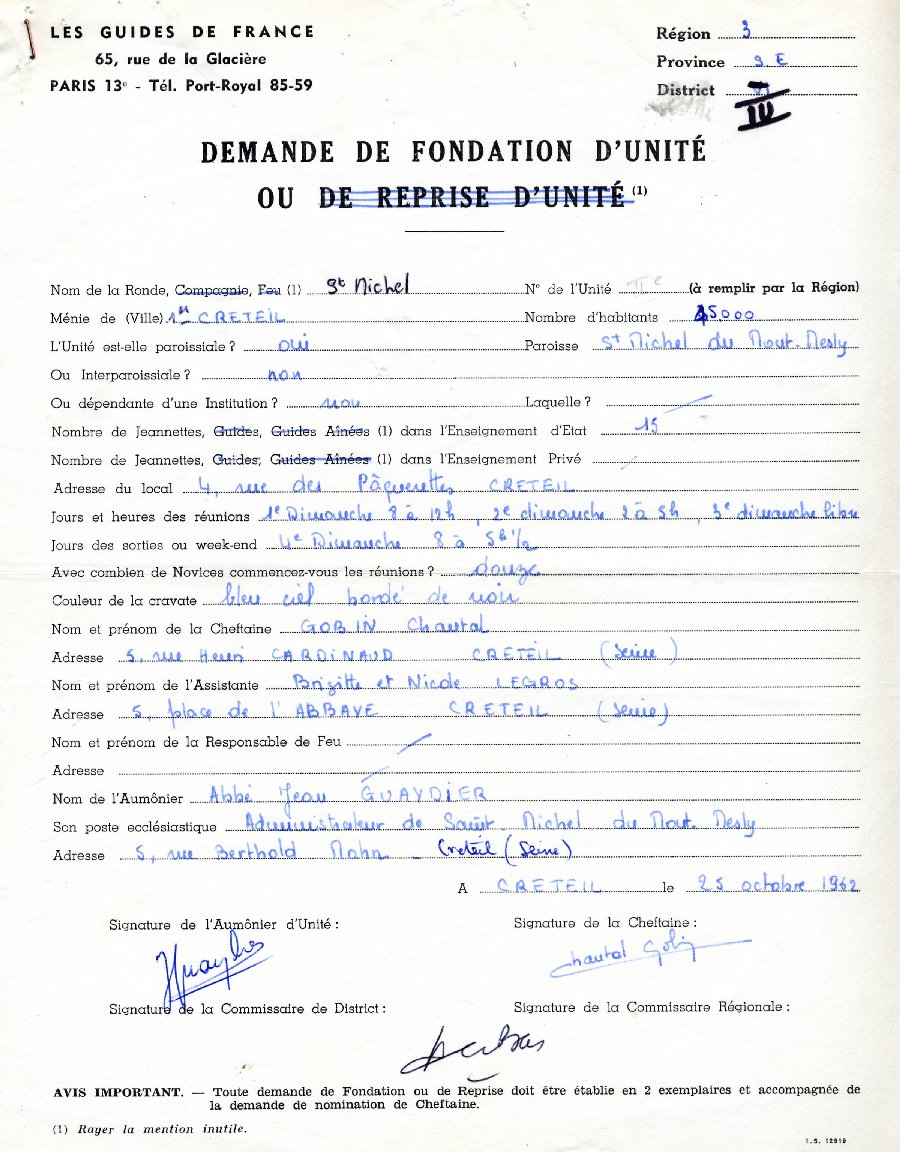 LES GUIDES DE FRANCE
65, rue de la Glacière
PARIS 13e - Tél. Port-Royal 85-59
Région 3
Province S E
District IV
DEMANDE DE FONDATION D'UNITÉ
OU DE REPRISE D'UNITÉ (1)
Nom de la Ronde, Compagnie, Feu (1) St Michel N° de l'Unité IIe (à remplir par la Région)
Ménie de (Ville) 1re CRETEIL Nombre d'habitants 45000
L'Unité est-elle paroissiale ? oui Paroisse St Michel du Mont-Mesly
Ou Interparoissiale ? non
Ou dépendante d'une Institution ? non Laquelle ? /
Nombre de Jeannettes, Guides, Guides Aînées (1) dans l'Enseignement d'Etat 15
Nombre de Jeannettes, Guides, Guides Aînées (1) dans l'Enseignement Privé /
Adresse du local 4, rue des Pâquerettes CRETEIL
Jours et heures des réunions 1e Dimanche 8 à 12h, 2e dimanche 2 à 5h, 3e dimanche libre
Jours des sorties ou week-end 4e Dimanche 8 à 5h 1/2
Avec combien de Novices commencez-vous les réunions ? douze
Couleur de la cravate bleu ciel bordé de noir
Nom et prénom de la Cheftaine GOBIN Chantal
Adresse 5, rue Henri CARDINAUD CRETEIL (Seine)
Nom et prénom de l'Assistante Brigitte et Nicole LEGROS
Adresse 5, place de l'ABBAYE CRETEIL (Seine)
Nom et prénom de la Responsable de Feu /
Adresse /
Nom de l'Aumônier Abbé Jean GUAYDIER
Son poste ecclésiastique Administrateur de Saint-Michel du Mont-Mesly
Adresse 5, rue Berthold Mahn - Creteil (Seine)
A CRETEIL le 25 octobre 1962
Signature de l'Aumônier d'Unité :
Signature de la Cheftaine :
Chantal Gobin
Signature de la Commissaire de District :
Signature de la Commissaire Régionale :
AVIS IMPORTANT. — Toute demande de Fondation ou de Reprise doit être établie en 2 exemplaires et accompagnée de
la demande de nomination de Cheftaine.
(1) Rayer la mention inutile.
I.S. 12919